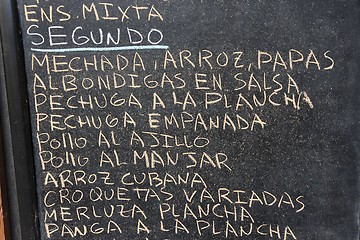 ENS. MIXTA
SEGUNDO
MECHADA, ARROZ, PAPAS
ALBONDIGAS EN SALSA
PECHUGA A LA PLANCHA
PECHUGA EMPANADA
POllO AL AJILLO
POllO AL MANJAR
ARROZ CUBANA
CROQUETAS VARIADAS
MERLUZA PLANCHA
PANGA A LA PLANCHA